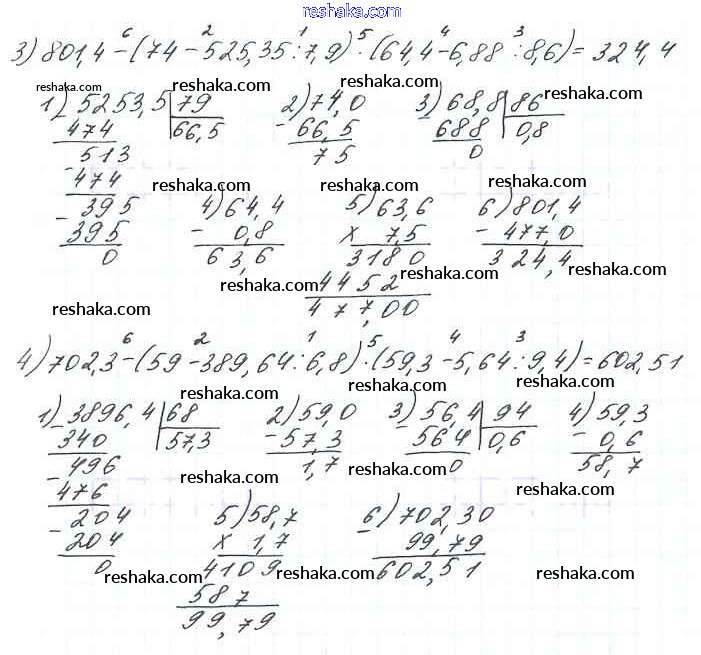 www.reshaka.com
6 2 1 5 4 3
3) 801,4 - (74 - 525,35 : 7,9) · (64,4 - 6,88 : 8,6) = 324,4
reshaka.com reshaka.com reshaka.com
1) 5253,5 | 79 2) 74,0 3) 68,8 | 86
474 66,5 - 66,5 - 688 0,8
- 513 7,5 0
reshaka.com
474 reshaka.com reshaka.com
- 395 4) 64,4 5) 63,6 6) 801,4
395 - 0,8 x 7,5 - 477,0
0 63,6 3180 324,4
reshaka.com reshaka.com
4452
reshaka.com 477,00
6 2 1 5 4 3
4) 702,3 - (59 - 389,64 : 6,8) · (59,3 - 5,64 : 9,4) = 602,51
reshaka.com reshaka.com reshaka.com
1) 3896,4 | 68 2) 59,0 3) 56,4 | 94 4) 59,3
340 57,3 - 57,3 - 564 0,6 - 0,6
- 496 1,7 0 58,7
reshaka.com
476 reshaka.com reshaka.com
- 204 5) 58,7 6) 702,30
204 x 1,7 - 99,79
0 4109 602,51
reshaka.com reshaka.com
587
reshaka.com
99,79